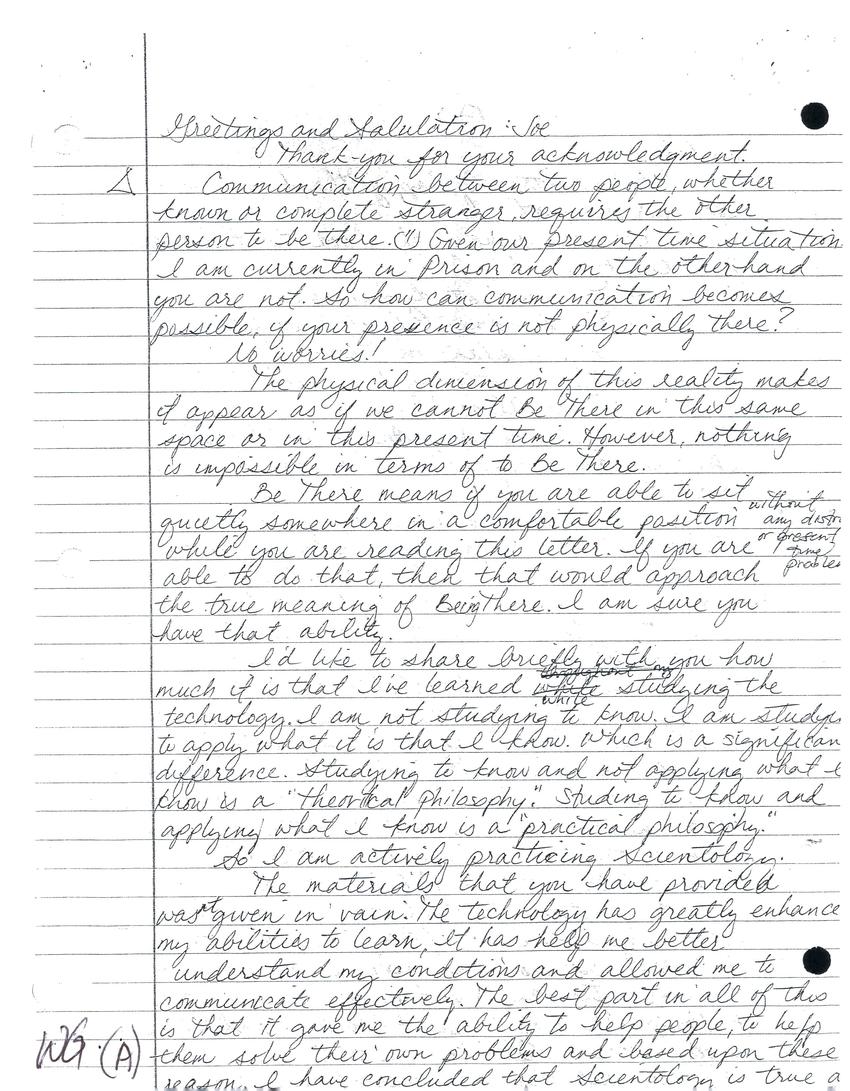 Greetings and Salulation : Joe
Thank-you for your acknowledgment.
Communication between two people, whether
known or complete stranger, requires the other
person to be there. (") Given our present time situation
I am currently in Prison and on the otherhand
you are not. So how can communication becomes
possible, if your presence is not physically there?
No worries!
The physical dimension of this reality makes
it appear as if we cannot Be There in this same
space or in this present time. However, nothing
is impossible in terms of to Be There.
Be There means if you are able to sit
quietly somewhere in a comfortable position without any distr
while you are reading this letter. If you are or present time problem
able to do that, then that would approach
the true meaning of Being There. I am sure you
have that ability.
I'd like to share briefly with you how
much it is that I've learned while studying the
technology. I am not studying to know. I am studyi
to apply what it is that I know. Which is a significan
difference. Studying to know and not applying what I
know is a "theortical philosophy." Studing to know and
applying what I know is a "practical philosophy."
So I am actively practicing Scientology.
The materials that you have provided
wasn't given in vain. The technology has greatly enhance
my abilities to learn, It has help me better
understand my conditions and allowed me to
communicate effectively. The best part in all of this
is that it gave me the ability to help people, to help
WG. (A)
them solve their own problems and based upon these
reason. I have concluded that Scientology is true a